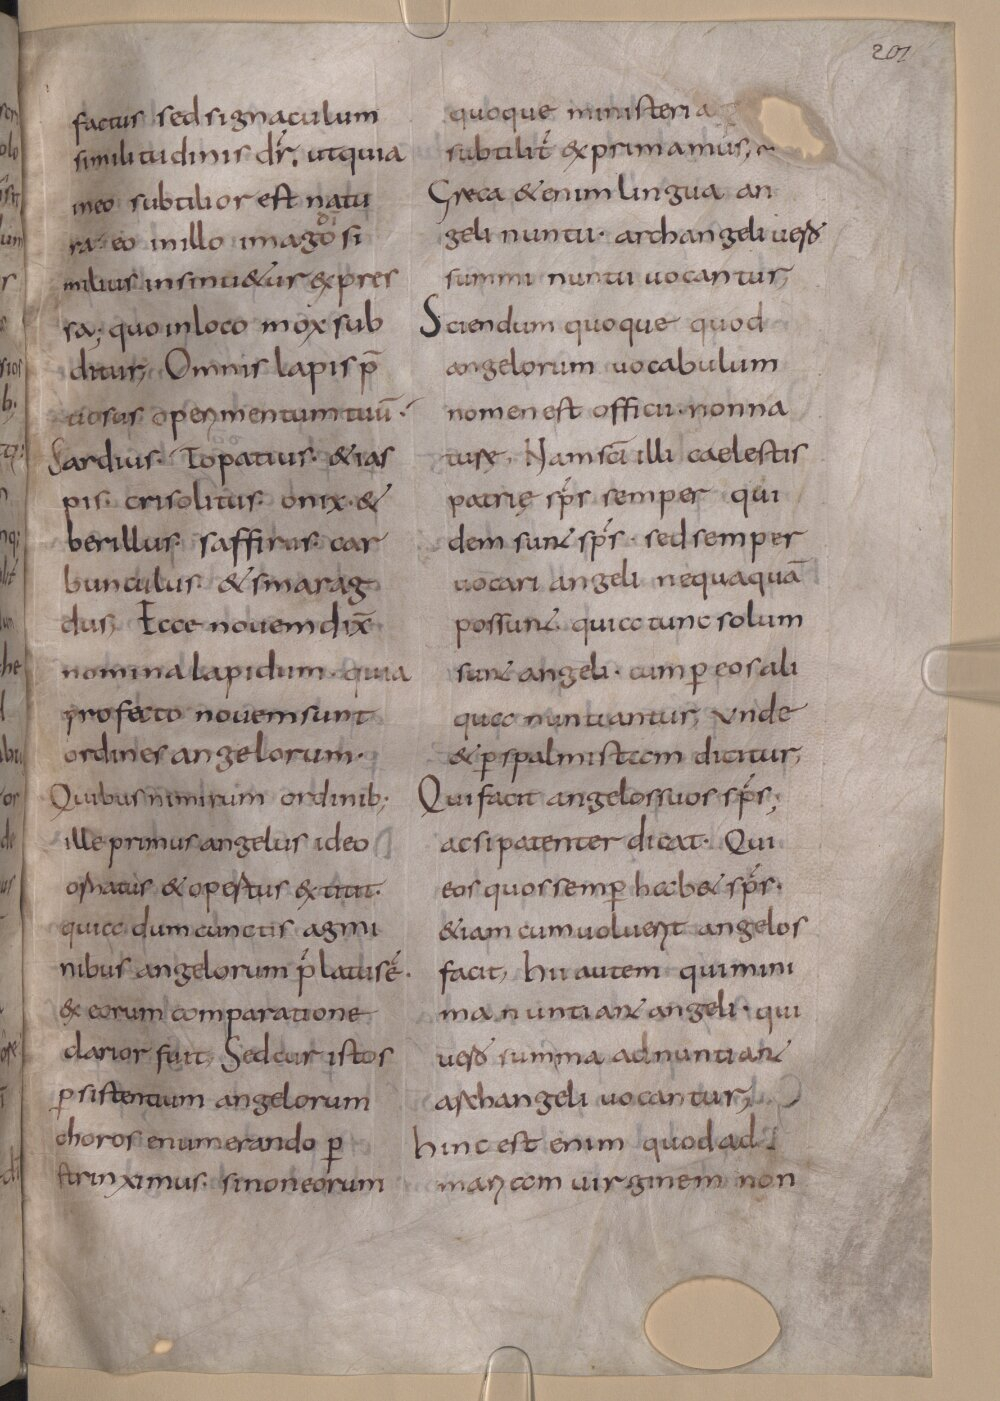 201
factus sed signaculum
similitudinis dr̄, ut quia
in eo subtilior est natu
ra· eo in illo imago di si
milius insinuetur expres
sa; quo in loco mox sub
ditur; Omnis lapis p̄
tiosus operimentum tuū·
Sardius· Topatius· & ias
pis· crisolitus· onix· &
berillus· saffirus· car
bunculus· & smarag
dus; Ecce novem dix̄
nomina lapidum· quia
profecto novem sunt
ordines angelorum·
Quibus nimirum ordinib;
ille primus angelus ideo
ornatus & opertus extitit·
quia dum cunctis agmi
nibus angelorum p̄latus ē·
ex eorum comparatione
clarior fuit; Sed cur istos
p̱sistentium angelorum
choros enumerando p̱
strinximus· si non eorum
quoque ministeria
subtilit̄ exprimamus;
Greca etenim lingua an
geli nuntii· archangeli ū
summi nuntii uocantur;
Sciendum quoque quod
angelorum uocabulum
nomen est officii· non na
turę· Nam sc̄i illi caelestis
patrię sp̄s semper qui
dem sunt sp̄s· sed semper
uocari angeli nequaquā
possunt· quia tunc solum
sunt angeli· cum p̱ eos ali
qua nuntiantur; Vnde
& p̱ spalmistam dicitur;
Qui facit angelos suos sp̄s;
ac si patenter dicat· Qui
eos quos semp̱ habet sp̄s·
etiam cum uoluerit angelos
facit; hii autem qui mini
ma nuntiant angeli· qui
uero summa adnuntiant
archangeli uocantur;
hinc est enim quod ad
mariam uirginem non